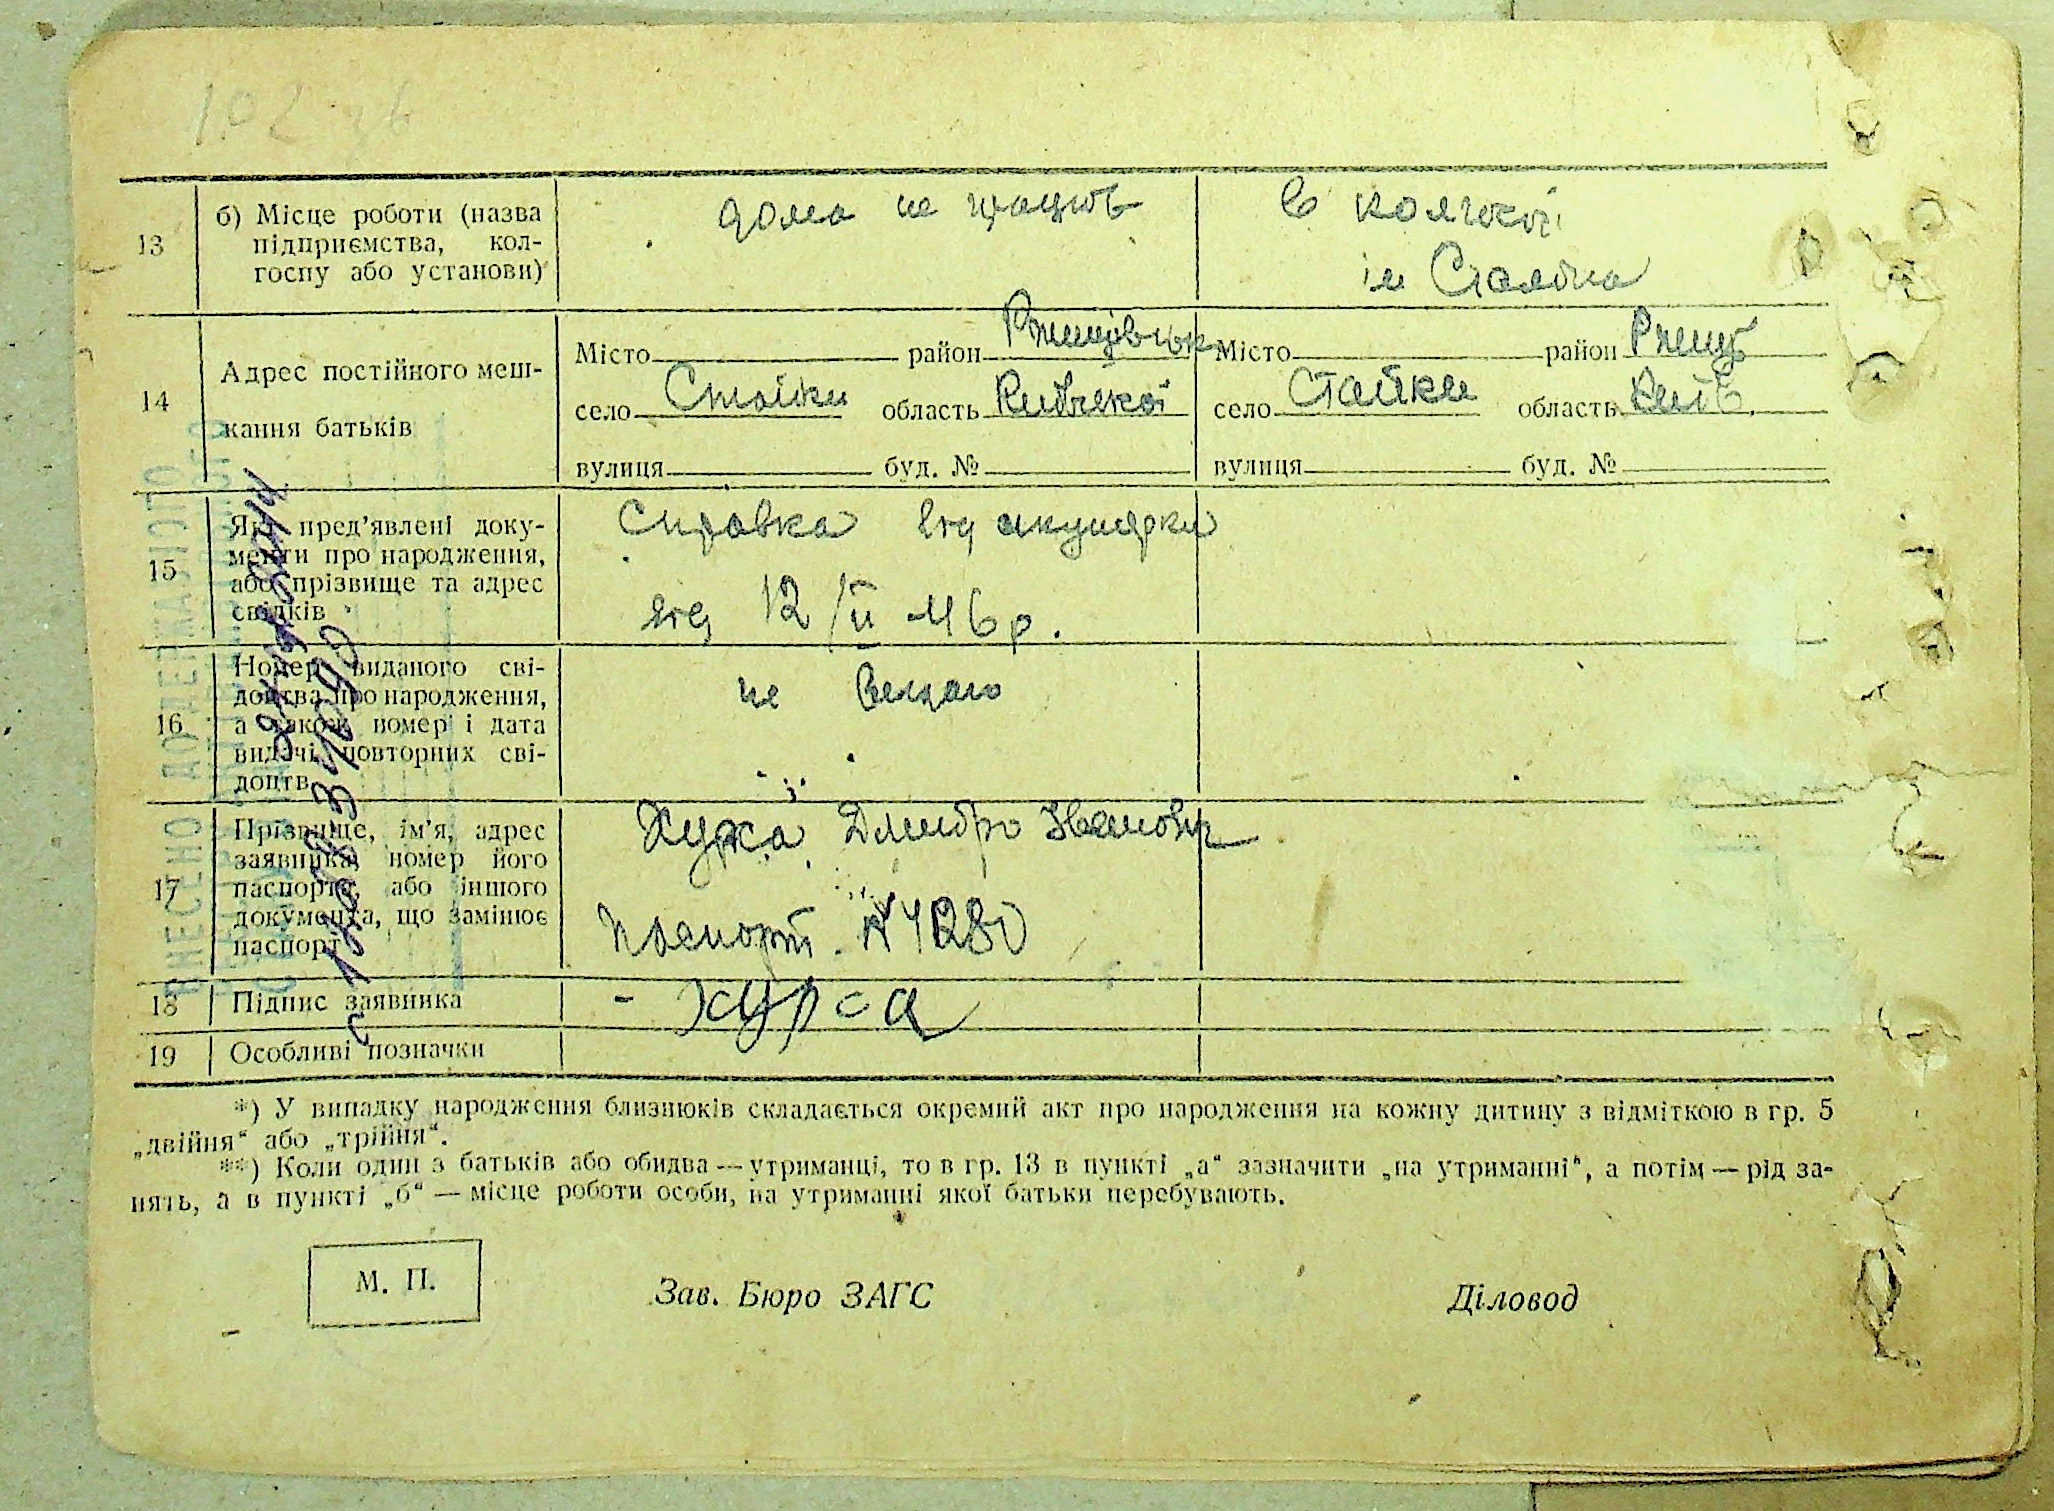 102 зв
13
б) Місце роботи (назва
підприємства, кол-
госпу або установи)
дома не працює
в колгоспі
ім Сталіна
14
Адрес постійного меш-
кання батьків
Місто район Ржищівськ
село Стайки область Київської
вулиця буд. №
Місто район Ржищ
село Стайки область Київ.
вулиця буд. №
15
Які пред'явлені доку-
менти про народження,
або прізвище та адрес
свідків
Справка від акушерки
від 12/ІІ 46 р.
16
Номер виданого сві-
доцтва про народження,
а також номер і дата
видачі повторних сві-
доцтв
не видано
17
Прізвище, ім'я, адрес
заявника, номер його
паспорта, або іншого
документа, що замінює
паспорт
Дмитро Іванович
паспорт №
18
Підпис заявника
19
Особливі позначки
ВНЕСЕНО ДО ДЕРЖАВНОГО
*) У випадку народження близнюків складається окремий акт про народження на кожну дитину з відміткою в гр. 5
„двійня" або „трійня".
**) Коли один з батьків або обидва — утриманці, то в гр. 13 в пункті „а" зазначити „на утриманні", а потім — рід за-
нять, а в пункті „б" — місце роботи особи, на утриманні якої батьки перебувають.
М. П.
Зав. Бюро ЗАГС
Діловод